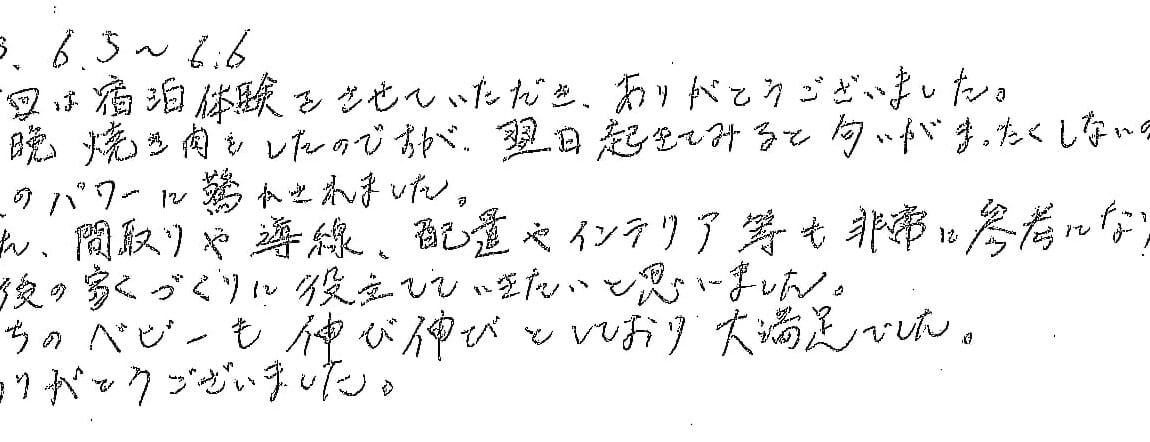 3. 6.5〜6.6
回は宿泊体験をさせていただき、ありがとうございました。
晩 焼き肉をしたのですが、翌日起きてみると匂いがまったくしないの
のパワーに驚かされました。
た、間取りや導線、配置やインテリア等も非常に参考になり
後の家づくりに役立てていきたいと思いました。
ちのベビーも伸び伸びとしており大満足でした。
りがとうございました。